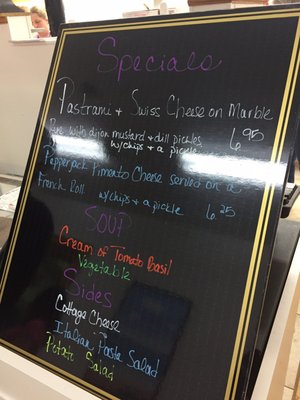 Specials
Pastrami + Swiss Cheese on Marble
Rye with dijon mustard + dill pickles 6.95
w/chips + a pickle
Pepperjack Pimento Cheese served on a
French Roll w/chips + a pickle 6.25
SOUP
Cream of Tomato Basil
Vegetable
Sides
Cottage Cheese
Italian Pasta Salad
Potato Salad